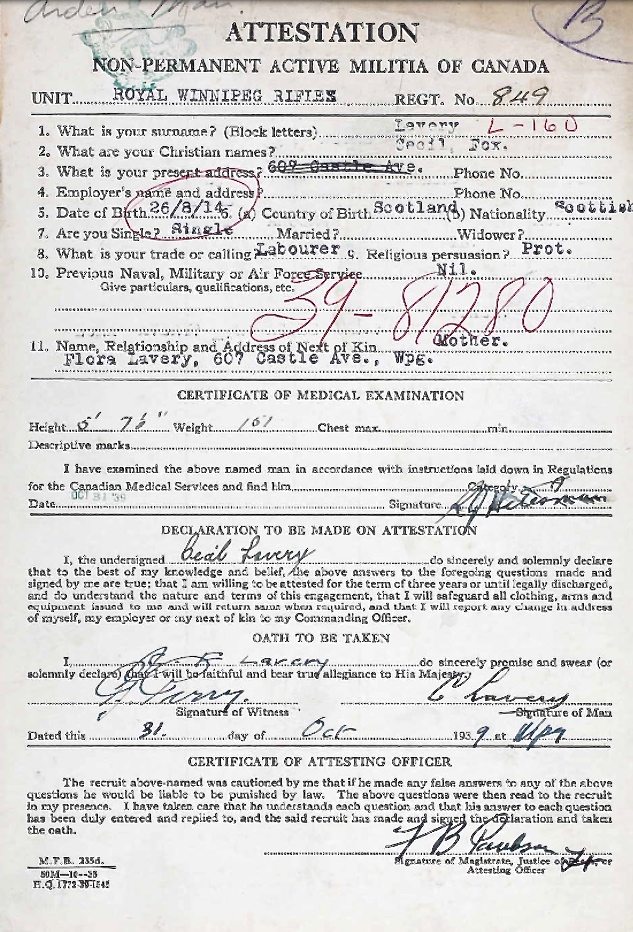 Arden Man.
B
ATTESTATION
NON-PERMANENT ACTIVE MILITIA OF CANADA
UNIT ROYAL WINNIPEG RIFLES REGT. No. 849
1. What is your surname? (Block letters) Lavery L-160
2. What are your Christian names? Cecil, Fox.
3. What is your present address? 607 Castle Ave. Phone No.
4. Employer's name and address? Phone No.
5. Date of Birth 26/8/14 6. (a) Country of Birth Scotland (b) Nationality Scottish
7. Are you Single? Single Married? Widower?
8. What is your trade or calling? Labourer 9. Religious persuasion? Prot.
10. Previous Naval, Military or Air Force Service Nil.
Give particulars, qualifications, etc.
39-81280
11. Name, Relationship and Address of Next of Kin Mother.
Flora Lavery, 607 Castle Ave., Wpg.
CERTIFICATE OF MEDICAL EXAMINATION
Height 5' 7½" Weight 151 Chest max. min.
Descriptive marks
I have examined the above named man in accordance with instructions laid down in Regulations
for the Canadian Medical Services and find him Category
Date OCT 31 39 Signature
DECLARATION TO BE MADE ON ATTESTATION
I, the undersigned Cecil Lavery do sincerely and solemnly declare
that to the best of my knowledge and belief, the above answers to the foregoing questions made and
signed by me are true; that I am willing to be attested for the term of three years or until legally discharged,
and do understand the nature and terms of this engagement, that I will safeguard all clothing, arms and
equipment issued to me and will return same when required, and that I will report any change in address
of myself, my employer or my next of kin to my Commanding Officer.
OATH TO BE TAKEN
I, F Lavery do sincerely promise and swear (or
solemnly declare) that I will be faithful and bear true allegiance to His Majesty.
C Lavery
Signature of Witness Signature of Man
Dated this 31 day of Oct 1939 at Wpg
CERTIFICATE OF ATTESTING OFFICER
The recruit above-named was cautioned by me that if he made any false answers to any of the above
questions he would be liable to be punished by law. The above questions were then read to the recruit
in my presence. I have taken care that he understands each question and that his answer to each question
has been duly entered and replied to, and the said recruit has made and signed the declaration and taken
the oath.
Signature of Magistrate, Justice of Peace, or
Attesting Officer
M.F.B. 235d.
50M-10-38
H.Q. 1772-39-1545